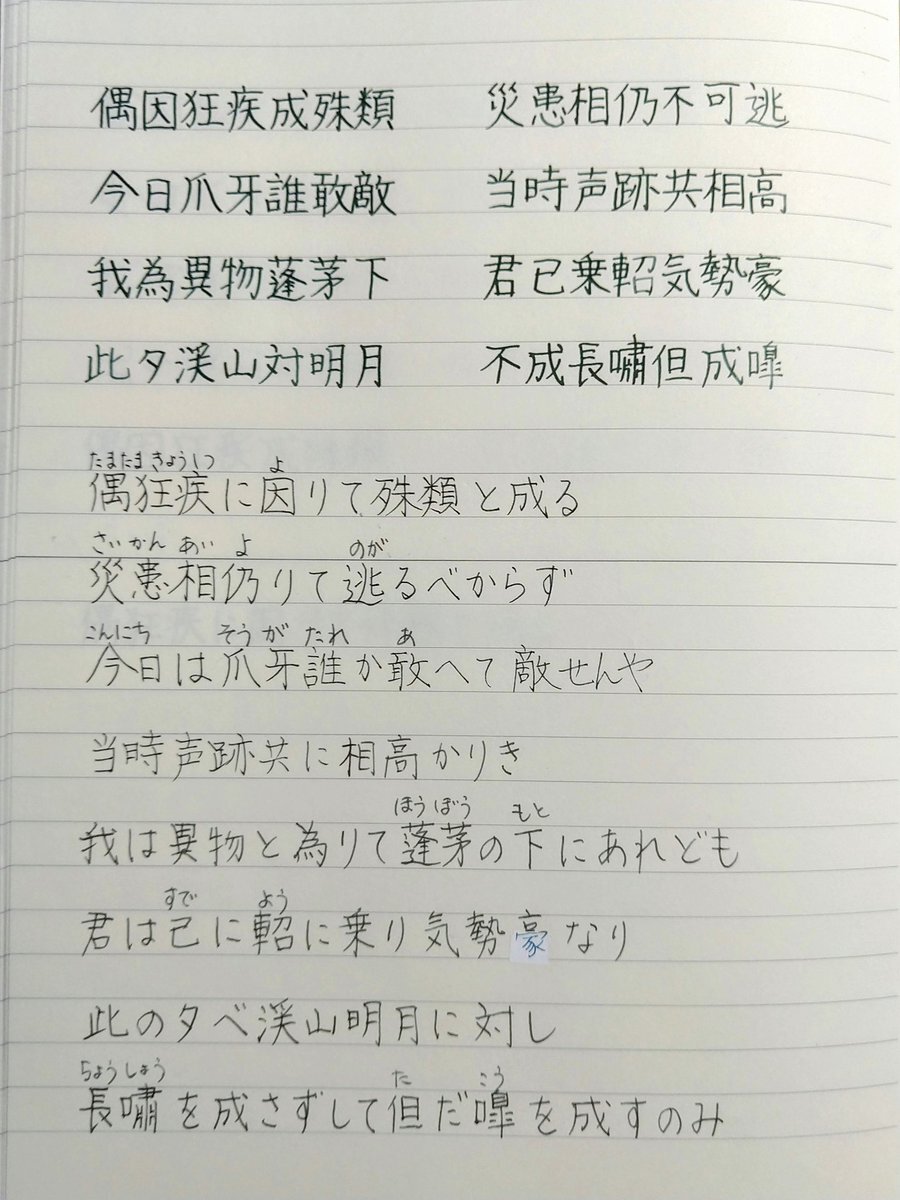 偶因狂疾成殊類　災患相仍不可逃
今日爪牙誰敢敵　当時声跡共相高
我為異物蓬茅下　君已乗軺気勢豪
此夕渓山対明月　不成長嘯但成嘷
たまたまきょうしつ　よ
偶狂疾に因りて殊類と成る
さいかん　あい　よ　のが
災患相仍りて逃るべからず
こんにち　そう　が　たれ　あ
今日は爪牙誰か敢へて敵せんや
当時声跡共に相高かりき
ほうぼう　もと
我は異物と為りて蓬茅の下にあれども
すで　よう
君は已に軺に乗り気勢豪なり
此の夕べ渓山明月に対し
ちょうしょう　た　こう
長嘯を成さずして但だ嘷を成すのみ